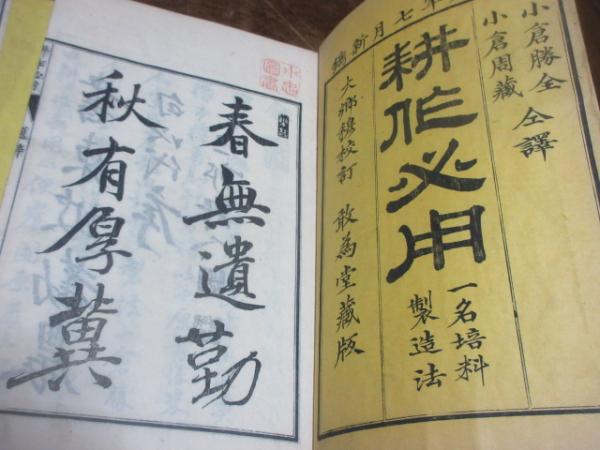 年七月新鐫
小倉勝全
小倉周藏
仝譯
耕作必用
一名培料
製造法
大郷穆校訂
敢為堂藏版
春無遺勤
秋有厚冀